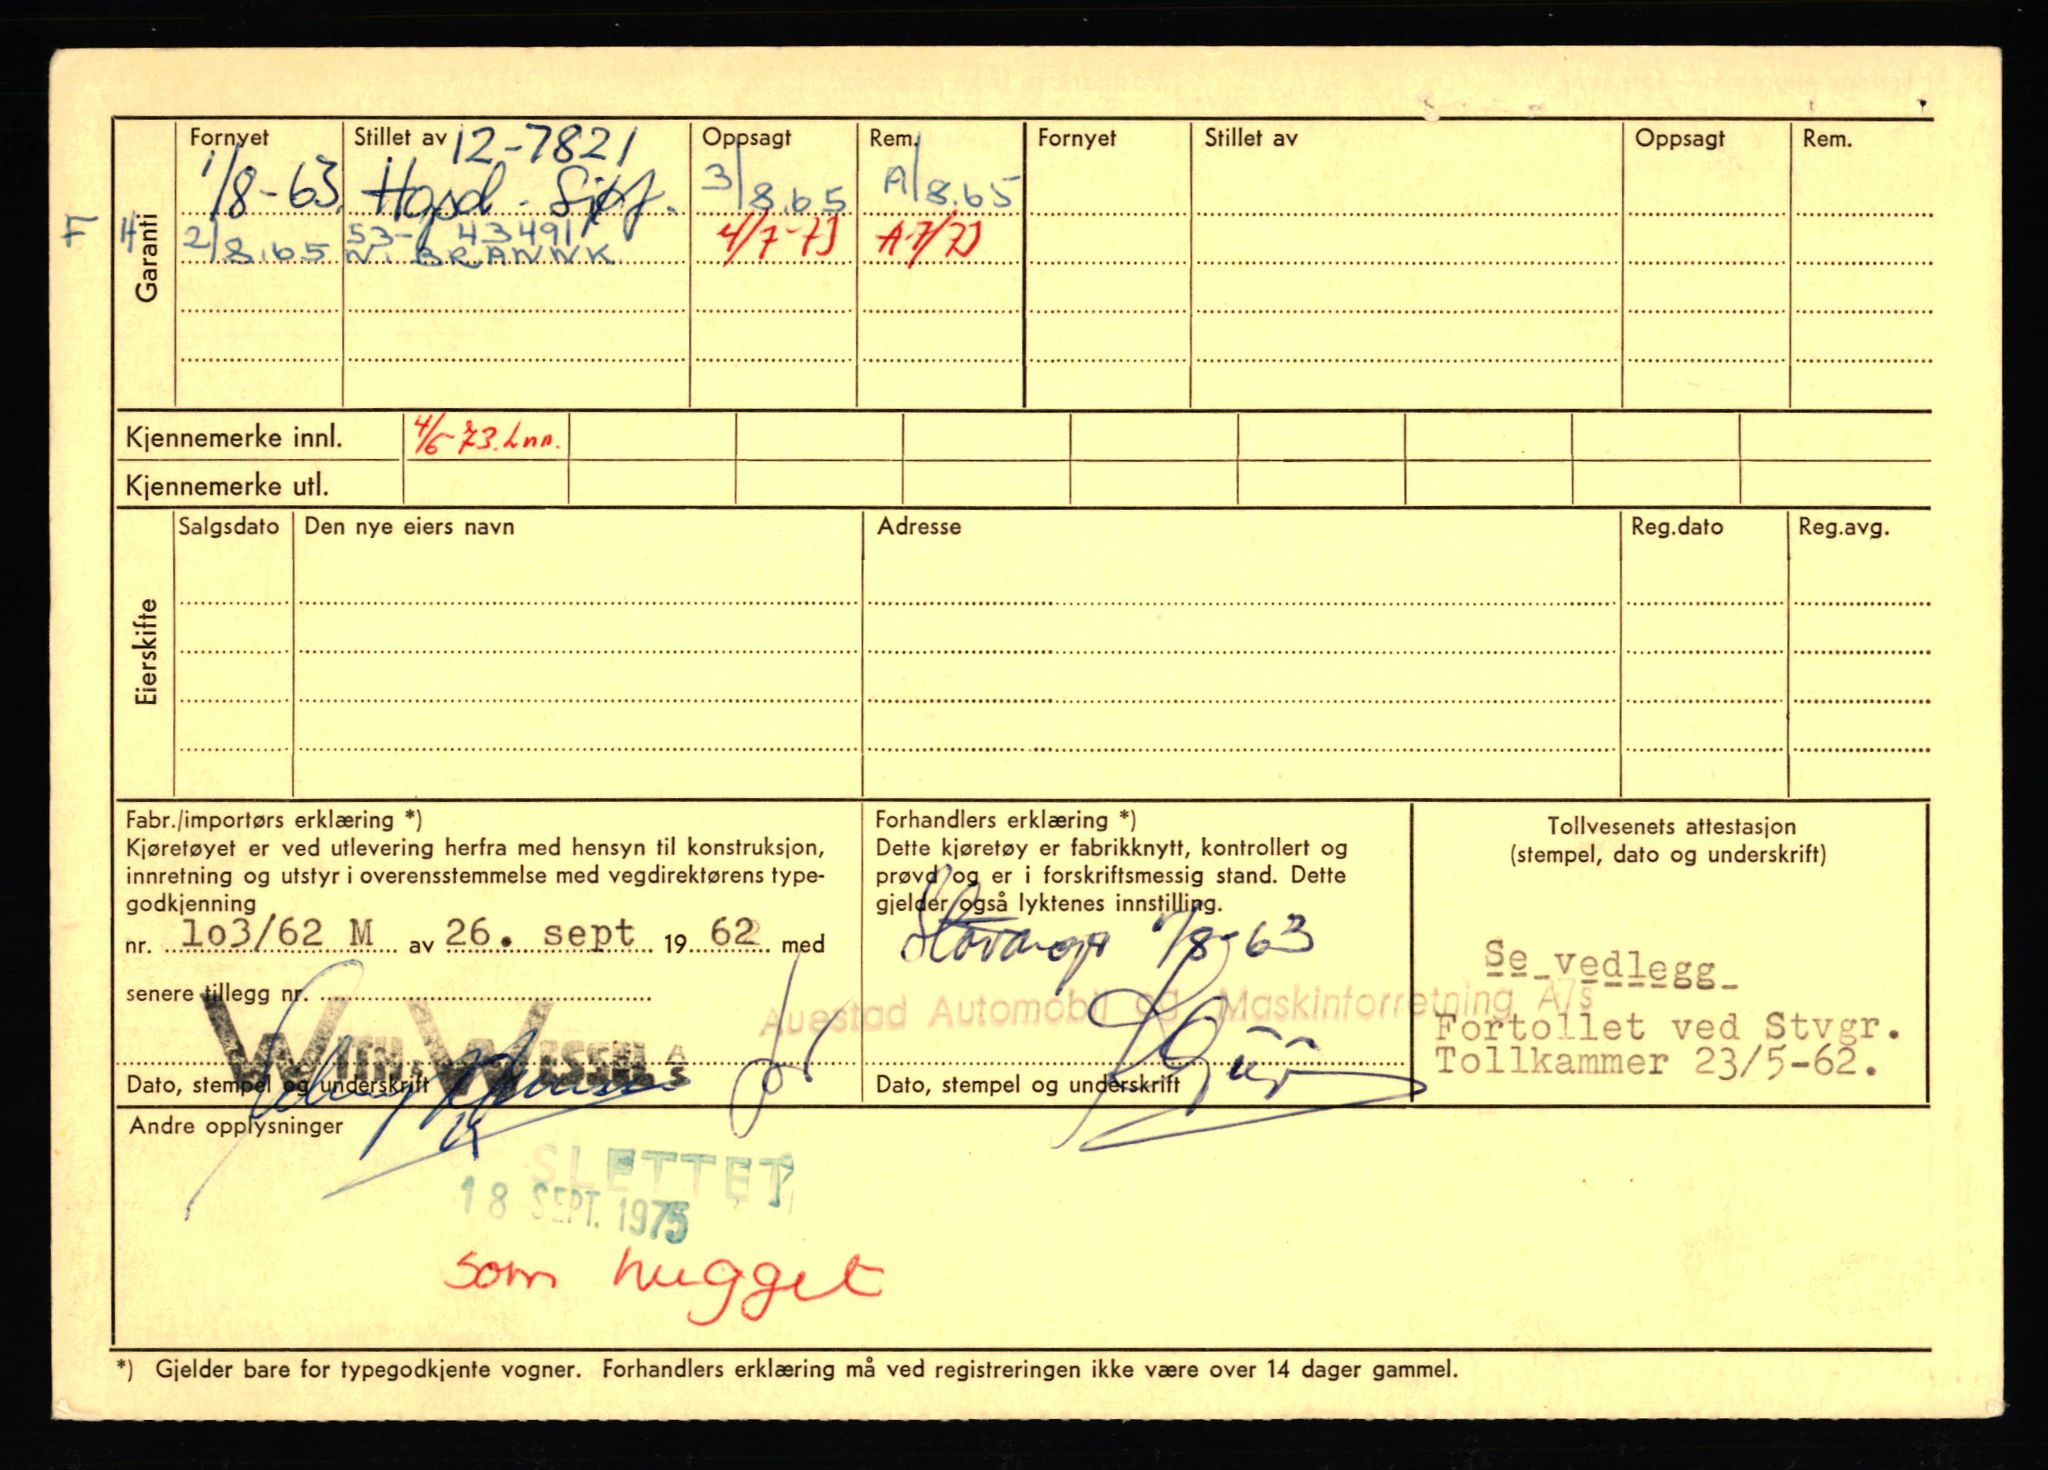 Garanti
Fornyet Stillet av Oppsagt Rem. Fornyet Stillet av Oppsagt Rem.
12-7821
1/8-63 3/8.65 A/8.65
F H 2/8.65 53-43491 4/7-73 A 7/73
N. BRANNK.
Kjennemerke innl. 4/6-73.
Kjennemerke utl.
Eierskifte
Salgsdato Den nye eiers navn Adresse Reg.dato Reg.avg.
Fabr./importørs erklæring *)
Kjøretøyet er ved utlevering herfra med hensyn til konstruksjon,
innretning og utstyr i overensstemmelse med vegdirektørens type-
godkjenning
nr. 1o3/62 M av 26. sept 19 62 med
senere tillegg nr.
WITH & WESSEL A/S
Dato, stempel og underskrift
Forhandlers erklæring *)
Dette kjøretøy er fabrikknytt, kontrollert og
prøvd og er i forskriftsmessig stand. Dette
gjelder også lyktenes innstilling.
Stavanger 1/8-63
Auestad Automobil og Maskinforretning A/s
Dato, stempel og underskrift
Tollvesenets attestasjon
(stempel, dato og underskrift)
Se vedlegg
Fortollet ved Stvgr.
Tollkammer 23/5-62.
Andre opplysninger
SLETTET
18 SEPT. 1975
som hugget
*) Gjelder bare for typegodkjente vogner. Forhandlers erklæring må ved registreringen ikke være over 14 dager gammel.